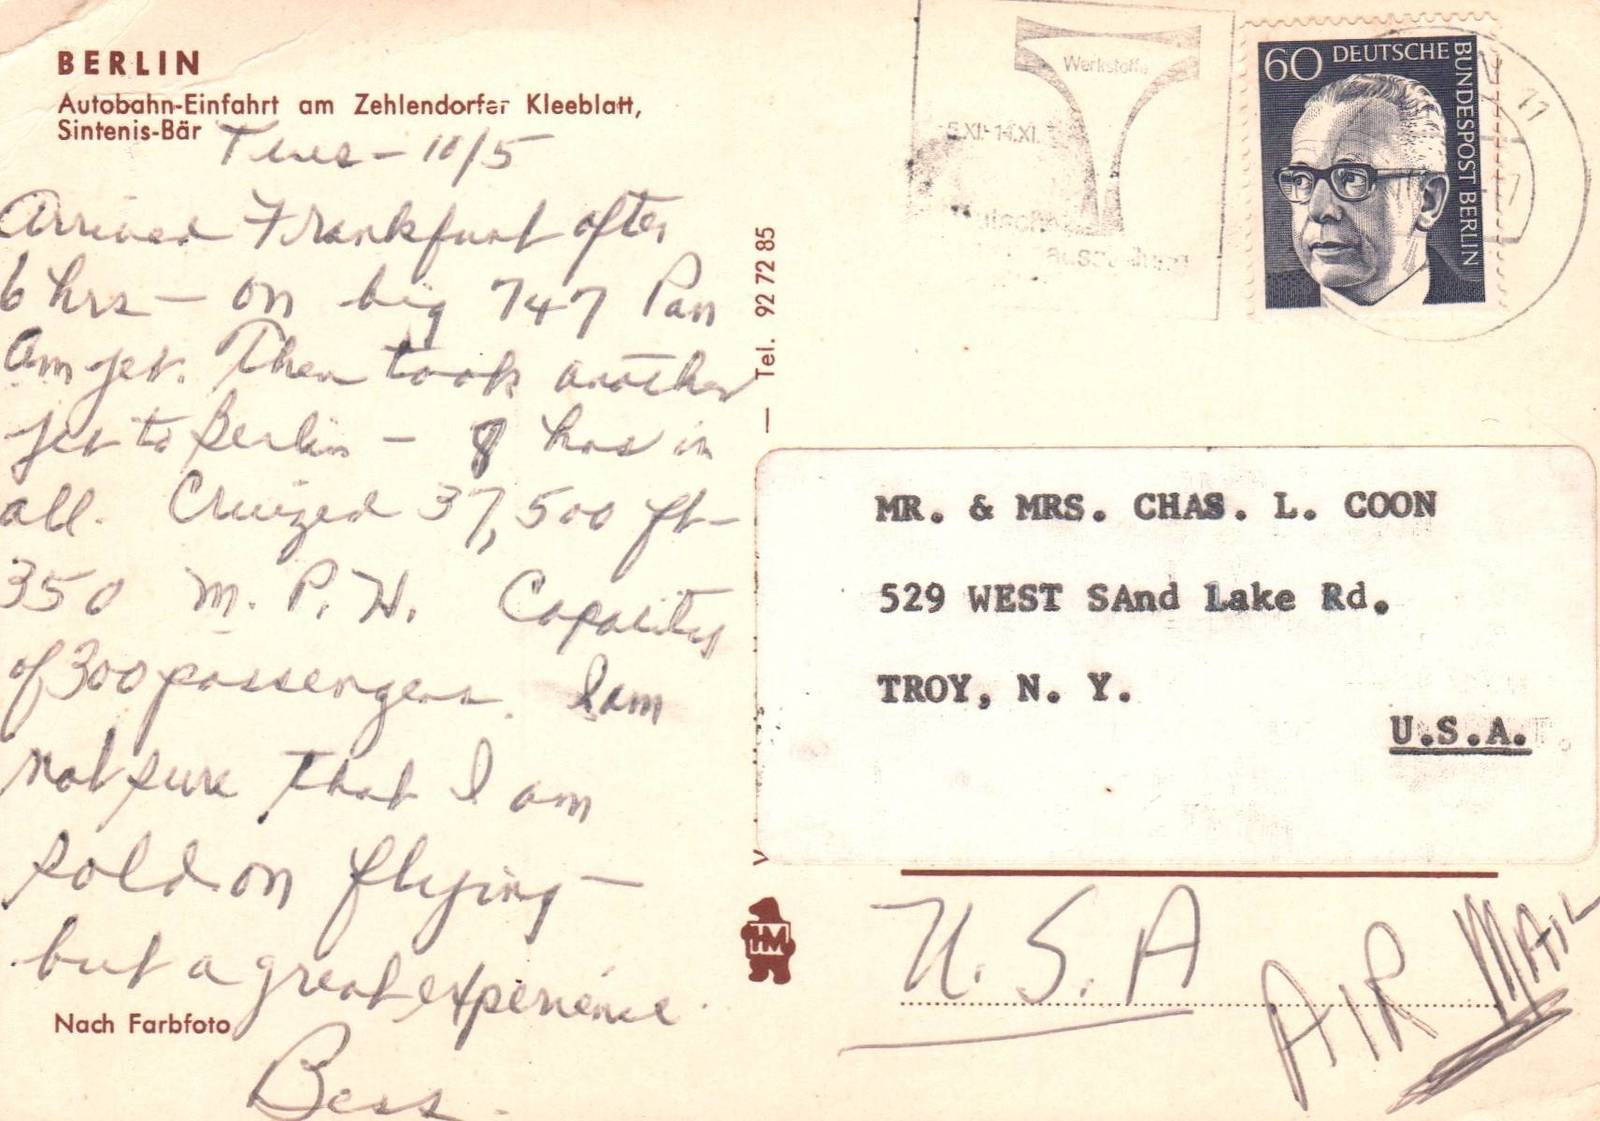 BERLIN
Autobahn-Einfahrt am Zehlendorfer Kleeblatt,
Sintenis-Bär
Tues - 10/5
Arrived Frankfurt after
6 hrs - on big 747 Pan
Am jet. Then took another
jet to Berlin - 8 hrs in
all. Cruized 37,500 ft -
350 M.P.H. Capacity
of 300 passengers. I am
not sure that I am
sold on flying -
but a great experience.
Bess.
Nach Farbfoto
Tel. 92 72 85
HM
Werkstoffe
5.XI.-14.XI.
60 DEUTSCHE
BUNDESPOST BERLIN
MR. & MRS. CHAS. L. COON
529 WEST SAnd Lake Rd.
TROY, N. Y.
U.S.A.
U.S.A
AIR MAIL